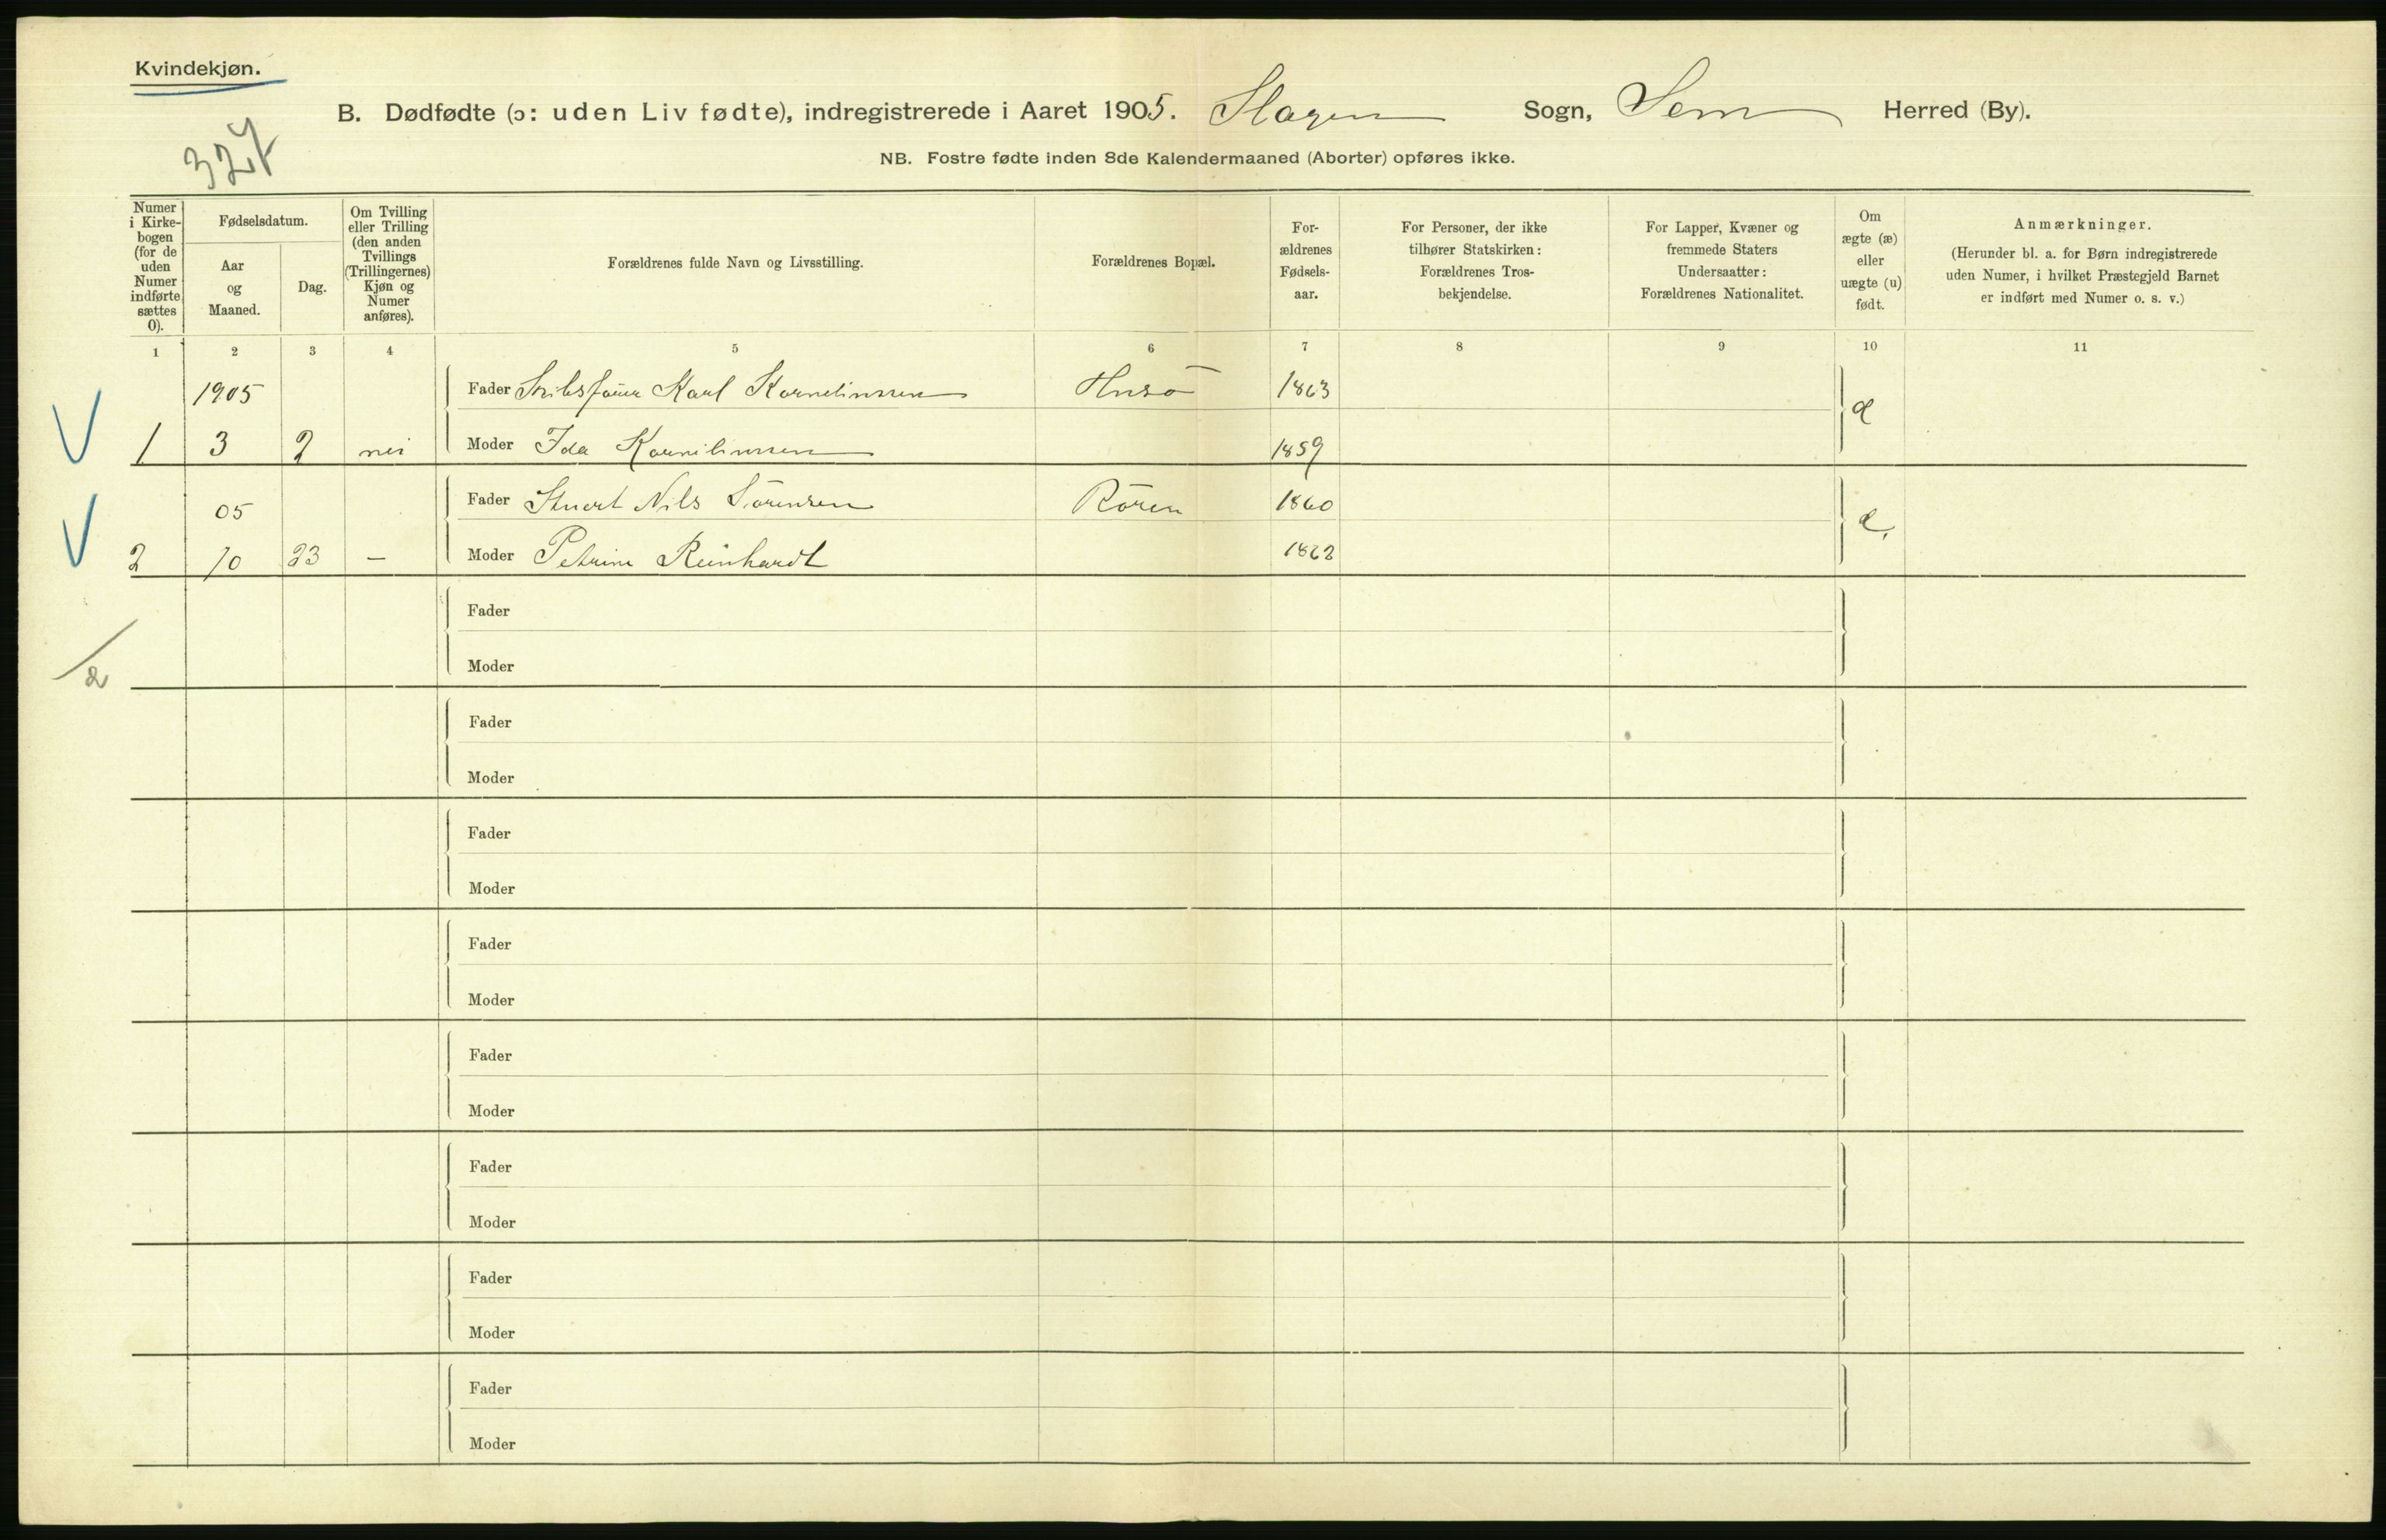 Kvindekjøn.
B. Dødfødte (ɔ: uden Liv fødte), indregistrerede i Aaret 1905. Slagen Sogn, Sem Herred (By).
324
NB. Fostre fødte inden 8de Kalendermaaned (Aborter) opføres ikke.
Numer
i Kirke-
bogen
(for de
uden
Numer
indførte
sættes
0).
Fødselsdatum.
Aar
og
Maaned.
Dag.
Om Tvilling
eller Trilling
(den anden
Tvillings
(Trillingernes)
Kjøn og
Numer
anføres).
Forældrenes fulde Navn og Livsstilling.
Forældrenes Bopæl.
For-
ældrenes
Fødsels-
aar.
For Personer, der ikke
tilhører Statskirken:
Forældrenes Tros-
bekjendelse.
For Lapper, Kvæner og
fremmede Staters
Undersaatter:
Forældrenes Nationalitet.
Om
ægte (æ)
eller
uægte (u)
født.
Anmærkninger.
(Herunder bl. a. for Børn indregistrerede
uden Numer, i hvilket Præstegjeld Barnet
er indført med Numer o. s. v.)
1 2 3 4 5 6 7 8 9 10 11
1905 Fader Skibsfører Karl Korneliussen Husö 1863
æ
1 3 2 nei Moder Ida Korneliussen 1859
05 Fader Stuert Nils Sörensen Rören 1860
æ.
2 10 23 – Moder Petrine Reinhardt 1862
Fader
Moder
2
Fader
Moder
Fader
Moder
Fader
Moder
Fader
Moder
Fader
Moder
Fader
Moder
Fader
Moder